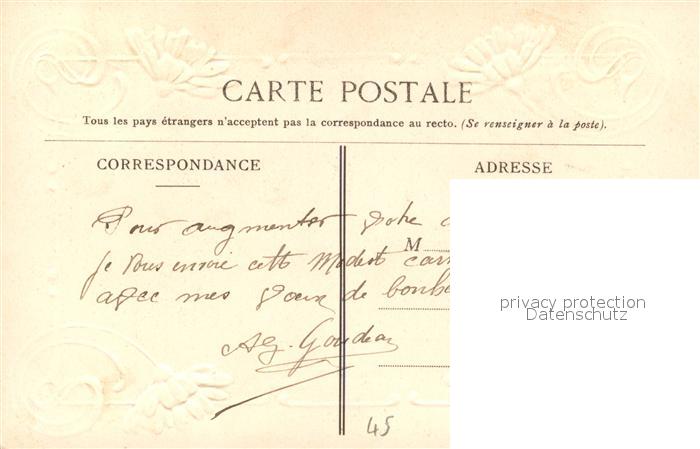 CARTE POSTALE
Tous les pays étrangers n'acceptent pas la correspondance au recto. (Se renseigner à la poste).
CORRESPONDANCE
ADRESSE
Pour augmenter votre
M
Je vous envoie cette Modest
avec mes vœux de
privacy protection
Datenschutz
45